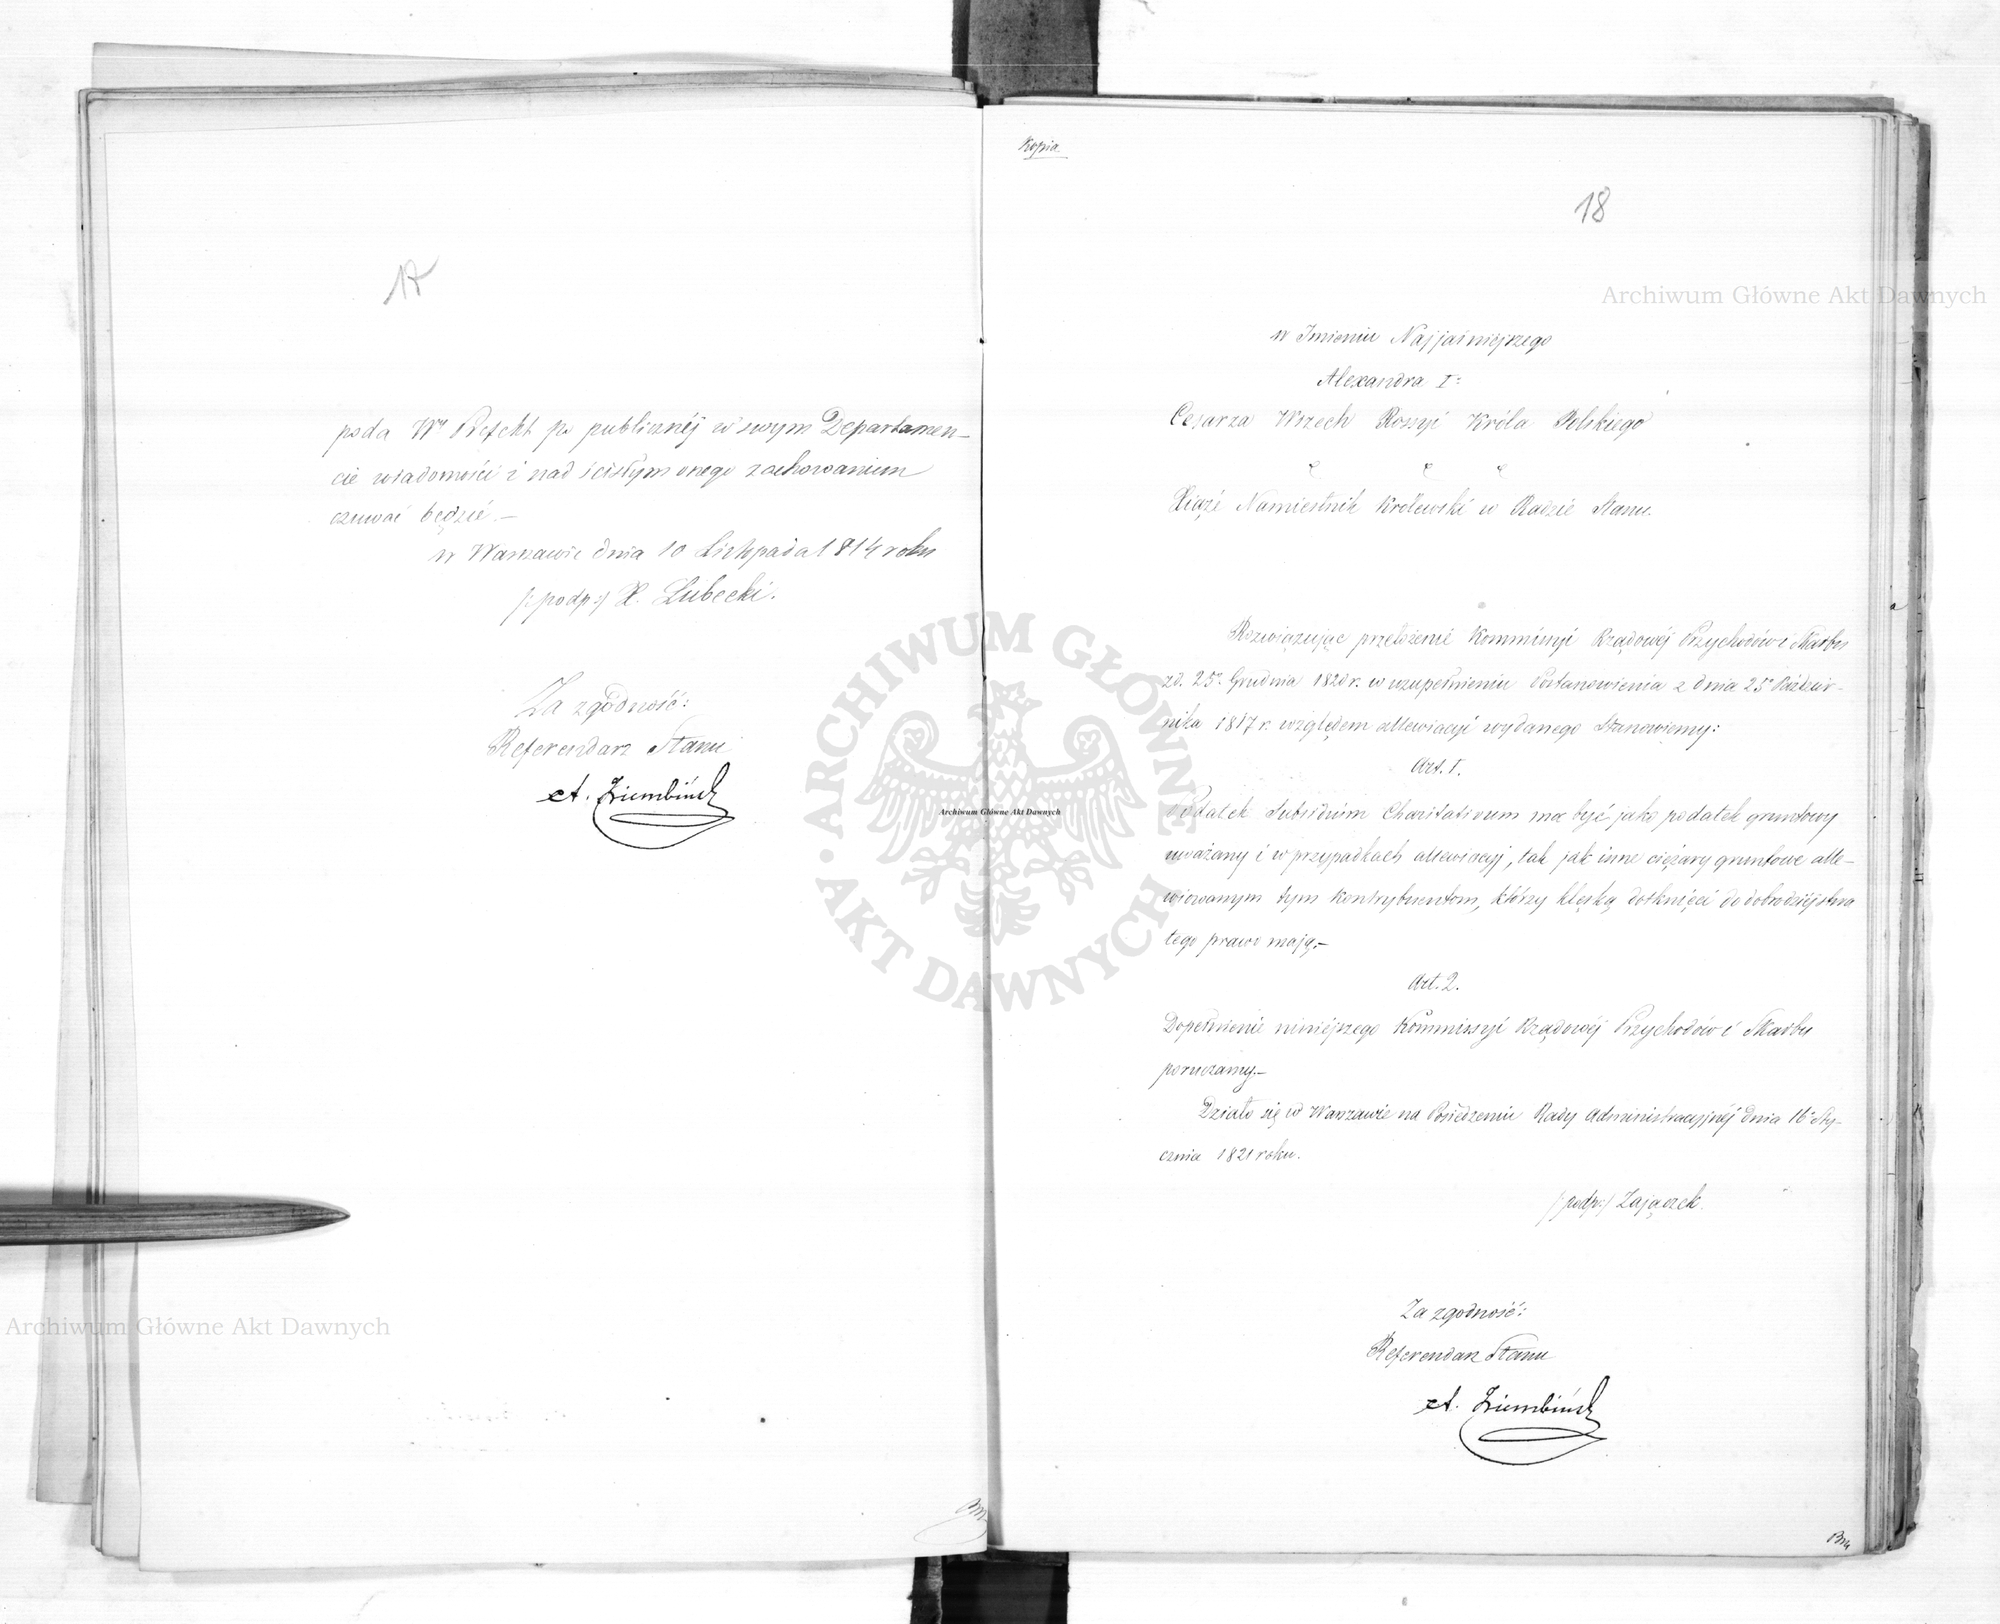 17
poda Wy Prefekt po publicznéj w swym Departamen-
cie wiadomości i nad scisłym onego zachowaniem
czuwać będzie.—
w Warszawie dnia 10 Listopada 1814 roku
/:podp:/ X. Lubecki.
Za zgodność:
Referendarz Stanu
A. Ziembiński
Kopia
18
w Imieniu Najjaśniejszego
Alexandra I:
Cesarza Wszech Rossyi Króla Polskiego
Xiąże Namiestnik Królewski w Radzie Stanu.
Rozwiązując przełożenie Kommissyi Rządowéj Przychodów i Skarbu
z d. 25. Grudnia 1820 r. w uzupełnieniu Postanowienia z dnia 25 Paździer-
nika 1817 r. względem allewiacyi wydanego Stanowiemy:
Art. I.
Podatek Subsidium Charitativum ma być jako podatek gruntowy
uważany i w przypadkach allewiacyj, tak jak inne ciężary gruntowe alle-
wiowanym tym kontrybuentom, którzy klęską dotknięci do dobrodziejstwa
tego prawo mają.—
Art. 2.
Dopełnienie niniejszego Kommissyi Rządowéj Przychodów i Skarbu
poruczamy.—
Działo się w Warszawie na Posiedzeniu Rady Administracyjnéj dnia 16 Sty-
cznia 1821 roku.
/:podp:/ Zajączek.
Za zgodność:
Referendarz Stanu
A. Ziembiński
Archiwum Główne Akt Dawnych
Archiwum Główne Akt Dawnych
Archiwum Główne Akt Dawnych
ARCHIWUM GŁÓWNE AKT DAWNYCH